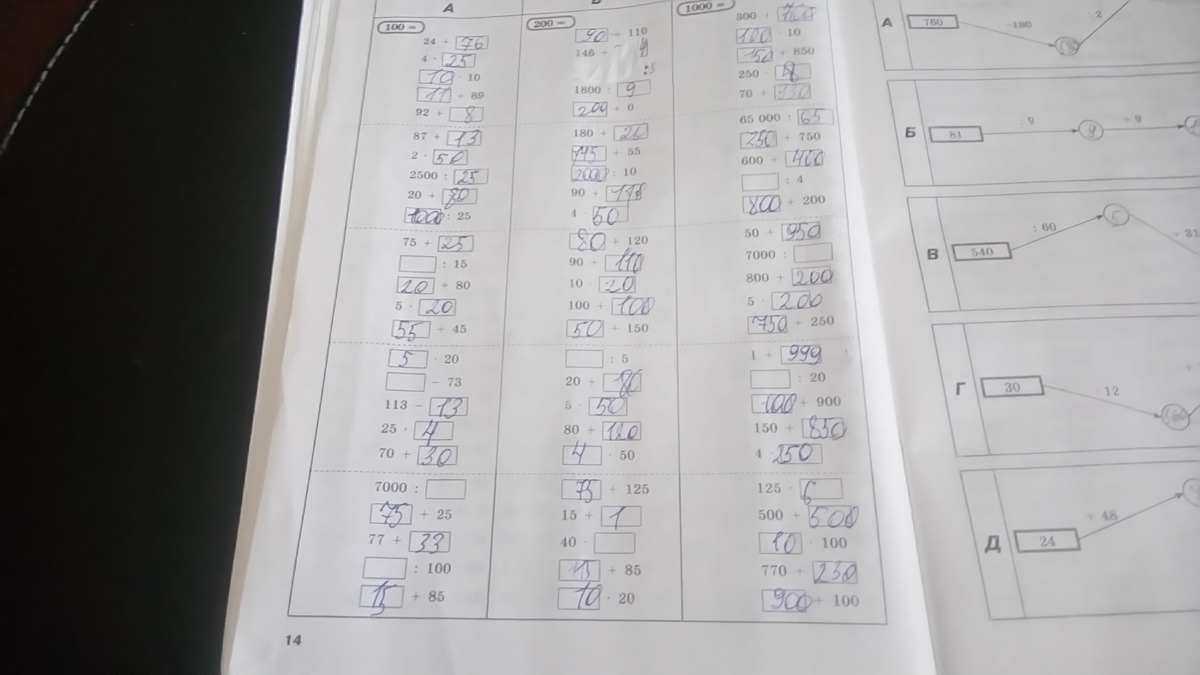 А
100 =
24 + 76
4 · 25
10 · 10
11 + 89
92 + 8
87 + 13
2 · 50
2500 : 25
20 + 80
1000 : 25
75 + 25
: 15
20 + 80
5 · 20
55 + 45
5 · 20
– 73
113 – 13
25 · 4
70 + 30
7000 :
75 + 25
77 + 33
: 100
15 + 85
200 =
90 + 110
146 +
:5
1800 : 9
200 + 0
180 +
145 + 55
2000 : 10
90 +
4 · 50
80 + 120
90 + 110
10 · 20
100 + 100
50 + 150
: 5
20 +
5 · 50
80 + 120
4 · 50
75 + 125
15 + 1
40 ·
+ 85
10 · 20
1000 =
800 +
100 · 10
150 + 850
250 ·
70 +
65 000 : 65
250 + 750
600 + 400
: 4
800 + 200
50 + 950
7000 :
800 + 200
5 · 200
750 + 250
1 + 999
: 20
100 + 900
150 + 850
4 · 250
125 · 6
500 + 500
10 · 100
770 + 230
900 + 100
14
А
760
-180
2
Б
81
: 9
9
+ 9
В
540
: 60
+ 31
Г
30
· 12
Д
24
+ 48